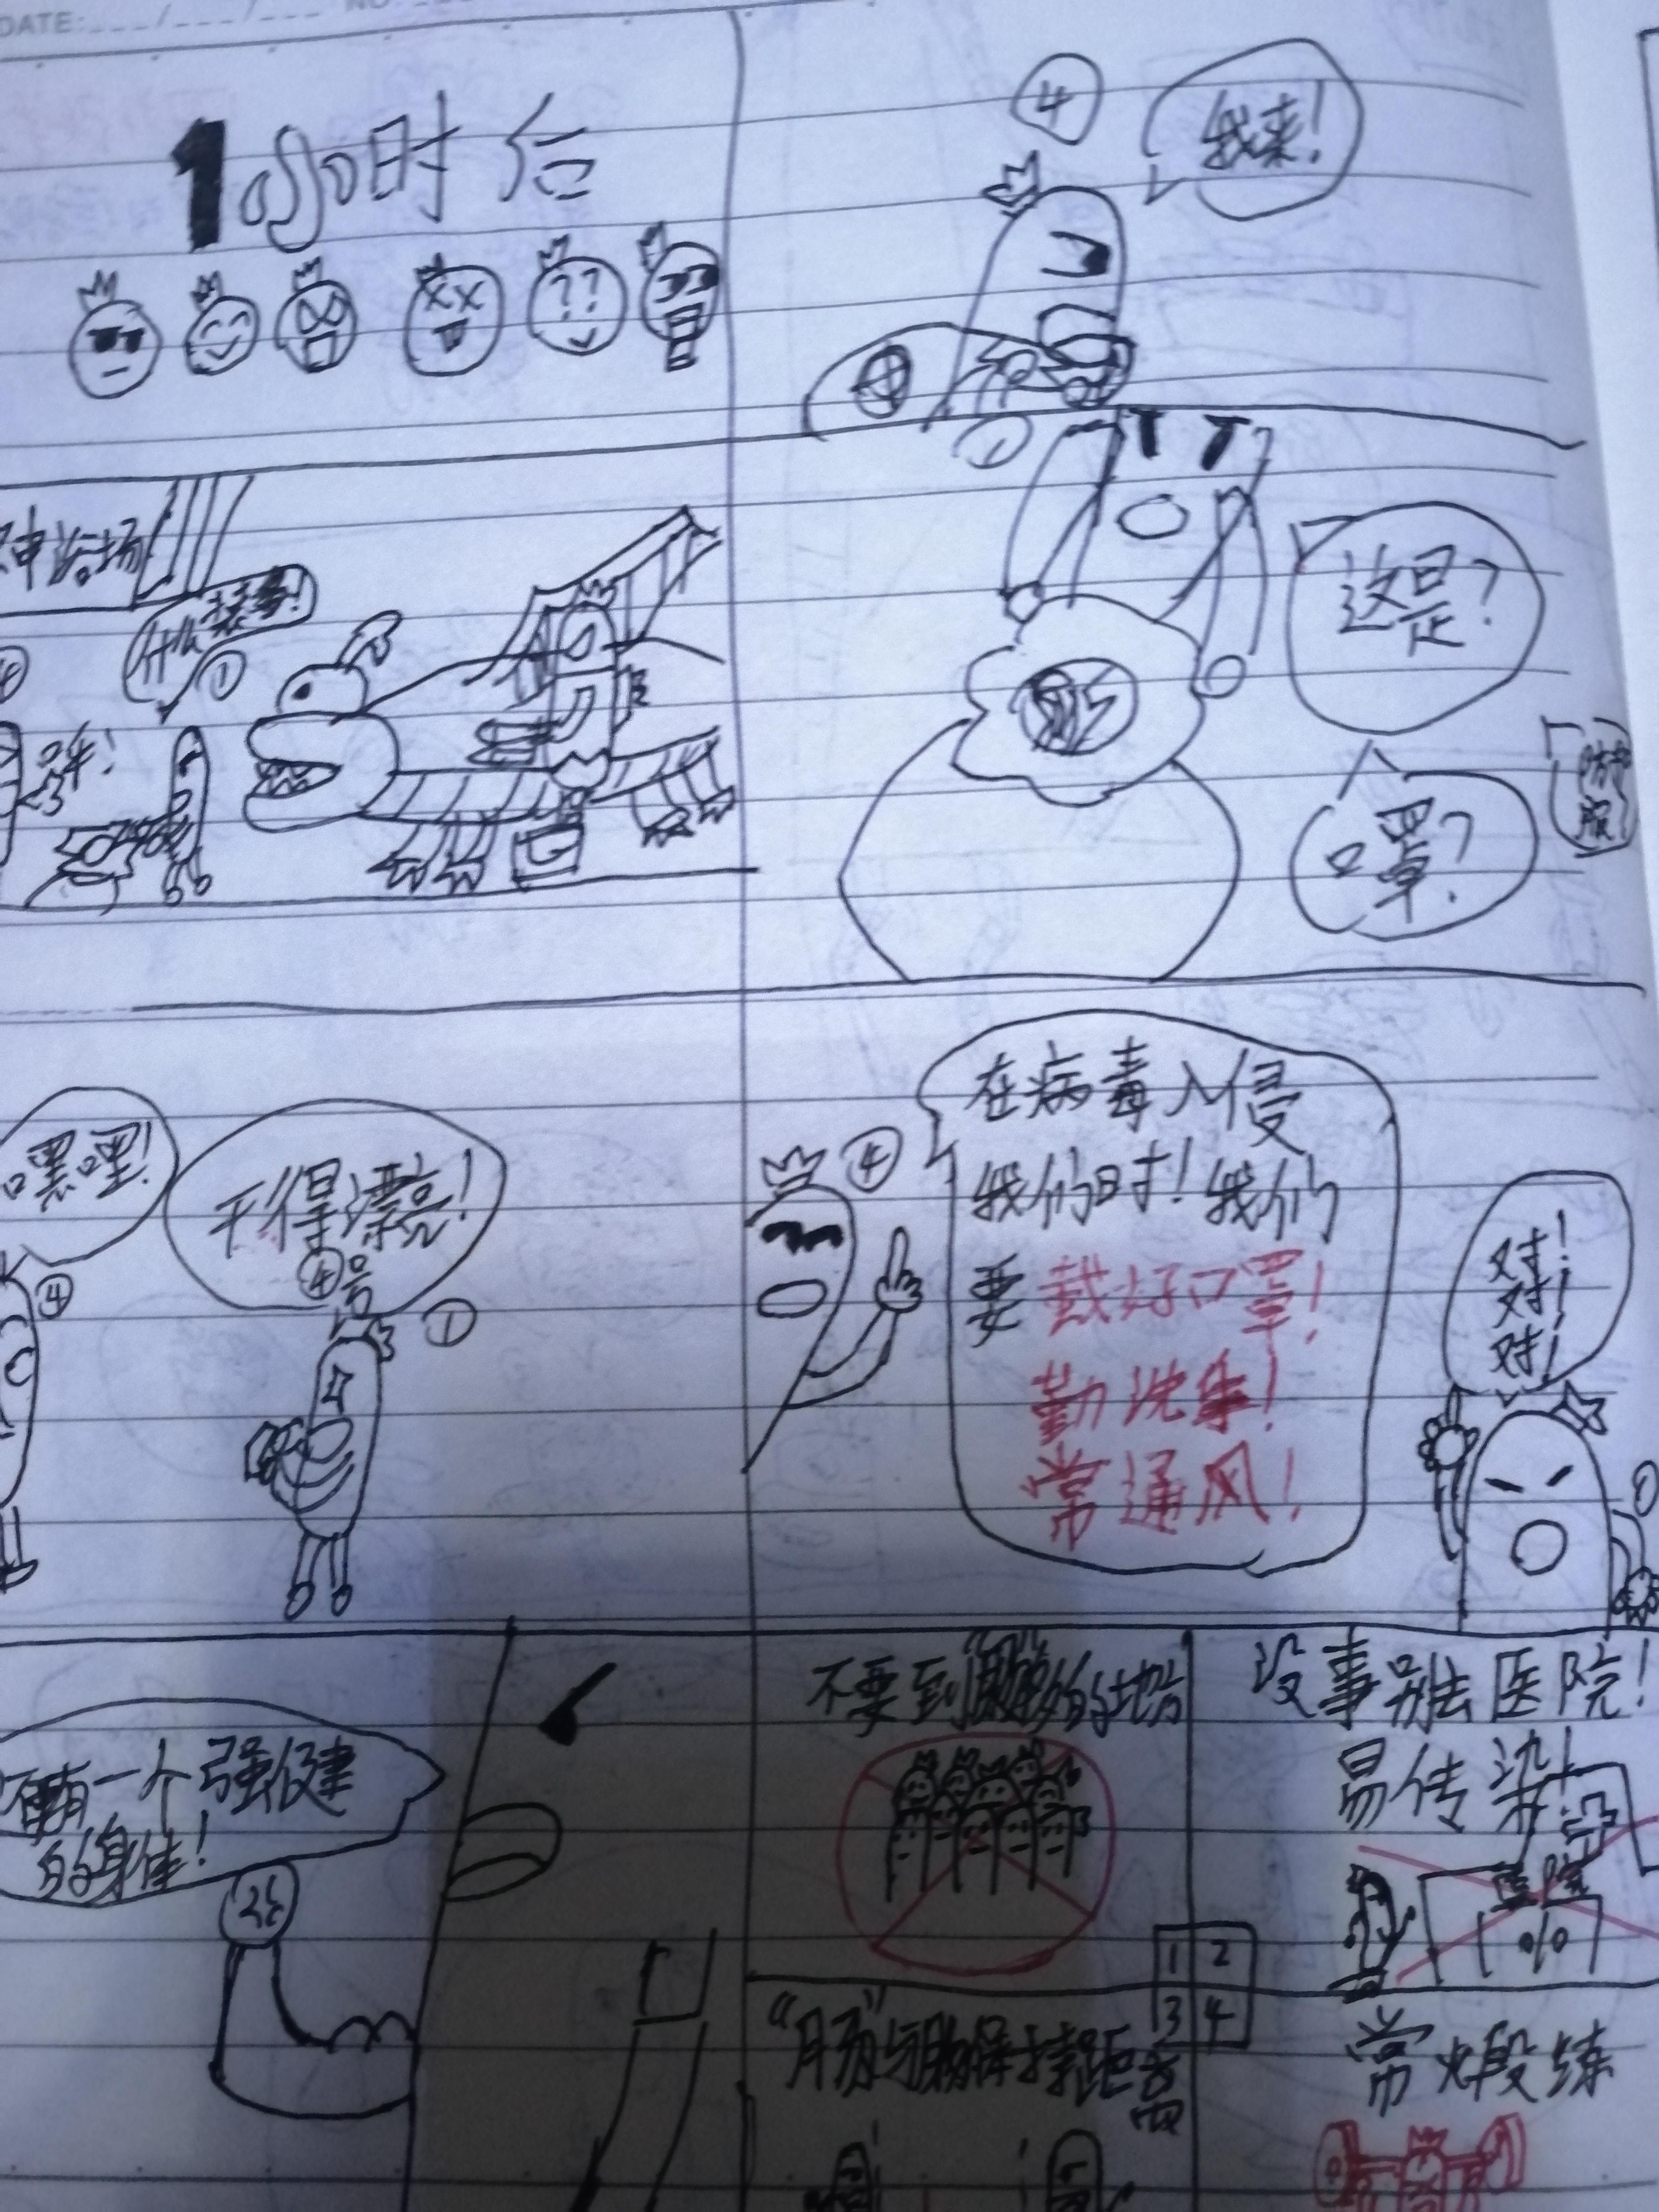 DATE: ___/___/___ NO.
1小时后
④
我来！
什么装备！
①
①
这是？
口罩？
防护服
嘿嘿！
④
干得漂亮！
④号
①
④
在病毒入侵
我们时！我们
要戴好口罩！
勤洗手！
常通风！
对！
对！
对！
①
一个强健
的身体！
不要到
的地方
没事别去医院！
易传染！
医院
1 2
3 4
"肠"与肠保持距离
常煅练